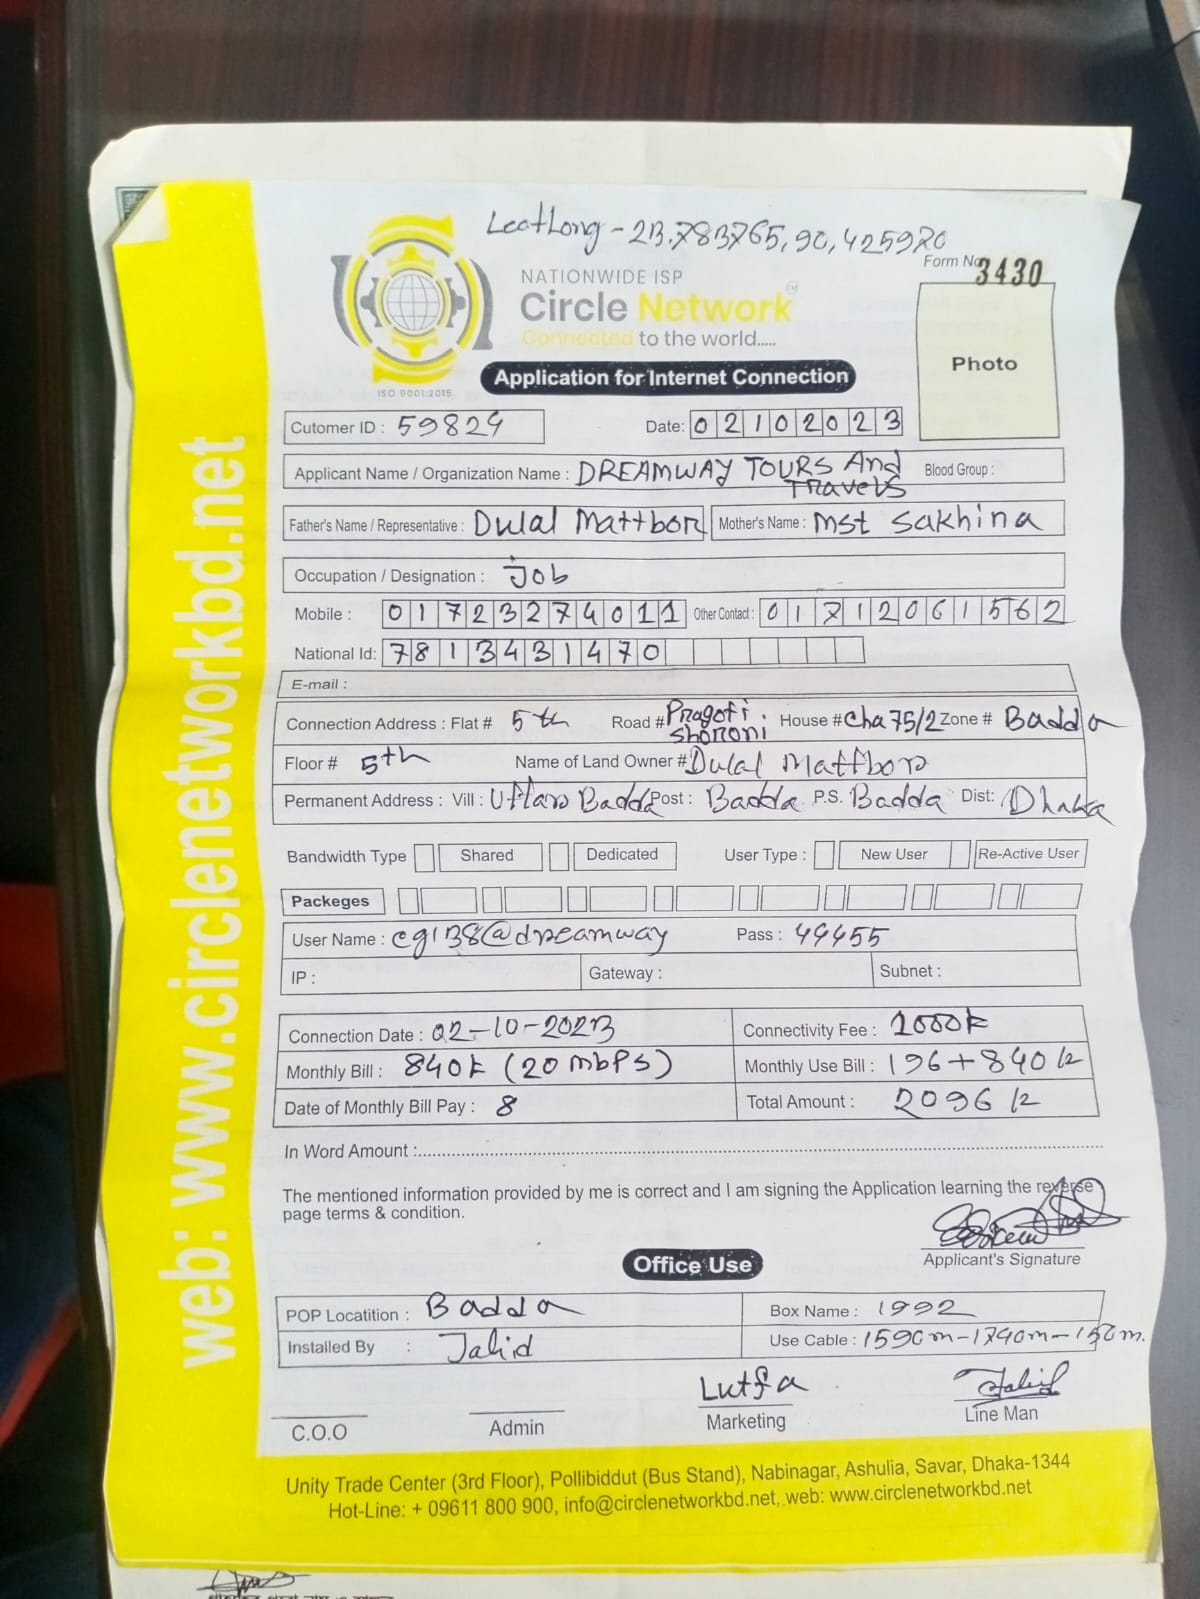 LatLong - 23.783765, 90,425970
Form No 3430
NATIONWIDE ISP
Circle Network
Connected to the world.....
ISO 9001:2015
Application for Internet Connection
Photo
Cutomer ID : 59824
Date: 02102023
Applicant Name / Organization Name : DREAMWAY TOURS And Travels
Blood Group :
Father's Name / Representative : Dulal Mattbor
Mother's Name : Mst Sakhina
Occupation / Designation : Job
Mobile : 01723274011 Other Contact : 01712061562
National Id: 7813431470
E-mail :
Connection Address : Flat # 5th Road # Pragoti Shoroni House # Cha 75/2 Zone # Badda
Floor # 5th Name of Land Owner # Dulal Mattbor
Permanent Address : Vill : Uttar Badda Post : Badda P.S. Badda Dist: Dhaka
Bandwidth Type Shared Dedicated User Type : New User Re-Active User
Packeges
User Name : cg138@dreamway Pass : 44455
IP : Gateway : Subnet :
Connection Date : 02-10-2023 Connectivity Fee : 1000/=
Monthly Bill : 840/= (20 mbps) Monthly Use Bill : 196+840/=
Date of Monthly Bill Pay : 8 Total Amount : 2096/=
In Word Amount :
The mentioned information provided by me is correct and I am signing the Application learning the reverse
page terms & condition.
Applicant's Signature
Office Use
POP Locatition : Badda Box Name : 1992
Installed By : Jahid Use Cable : 1590m-1740m-150m.
Lutfa
C.O.O Admin Marketing Line Man
Unity Trade Center (3rd Floor), Pollibiddut (Bus Stand), Nabinagar, Ashulia, Savar, Dhaka-1344
Hot-Line: + 09611 800 900, info@circlenetworkbd.net, web: www.circlenetworkbd.net
web: www.circlenetworkbd.net